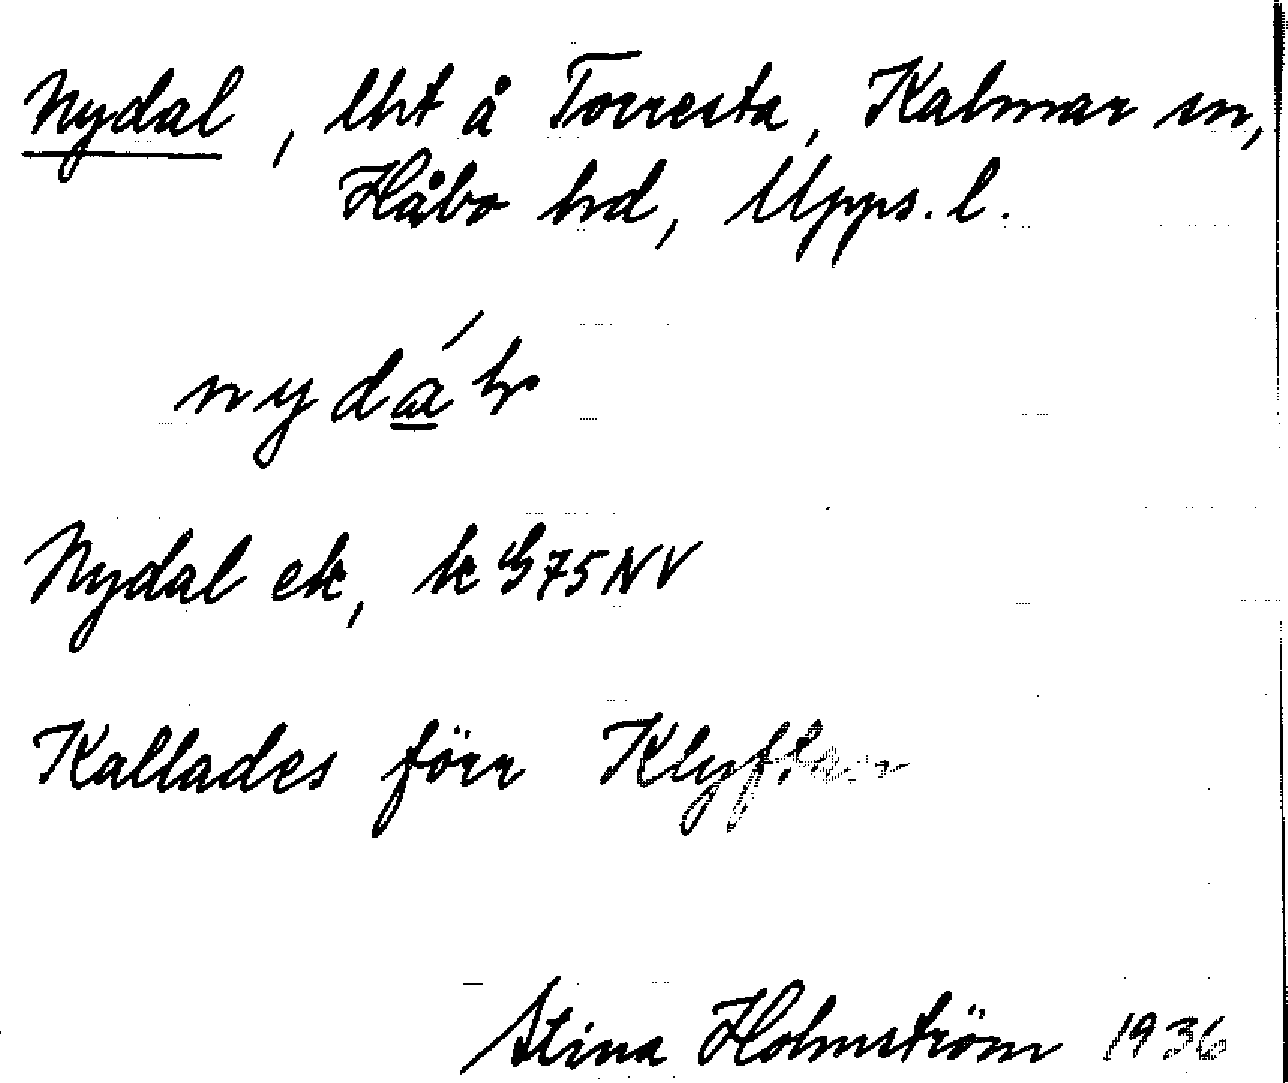 Nydal, lht å Torresta, Kalmar sn,
Håbo hd, Upps. l.
Nydal ek, k G75NV
Kallades förr Klyftan
Stina Holmström 1936